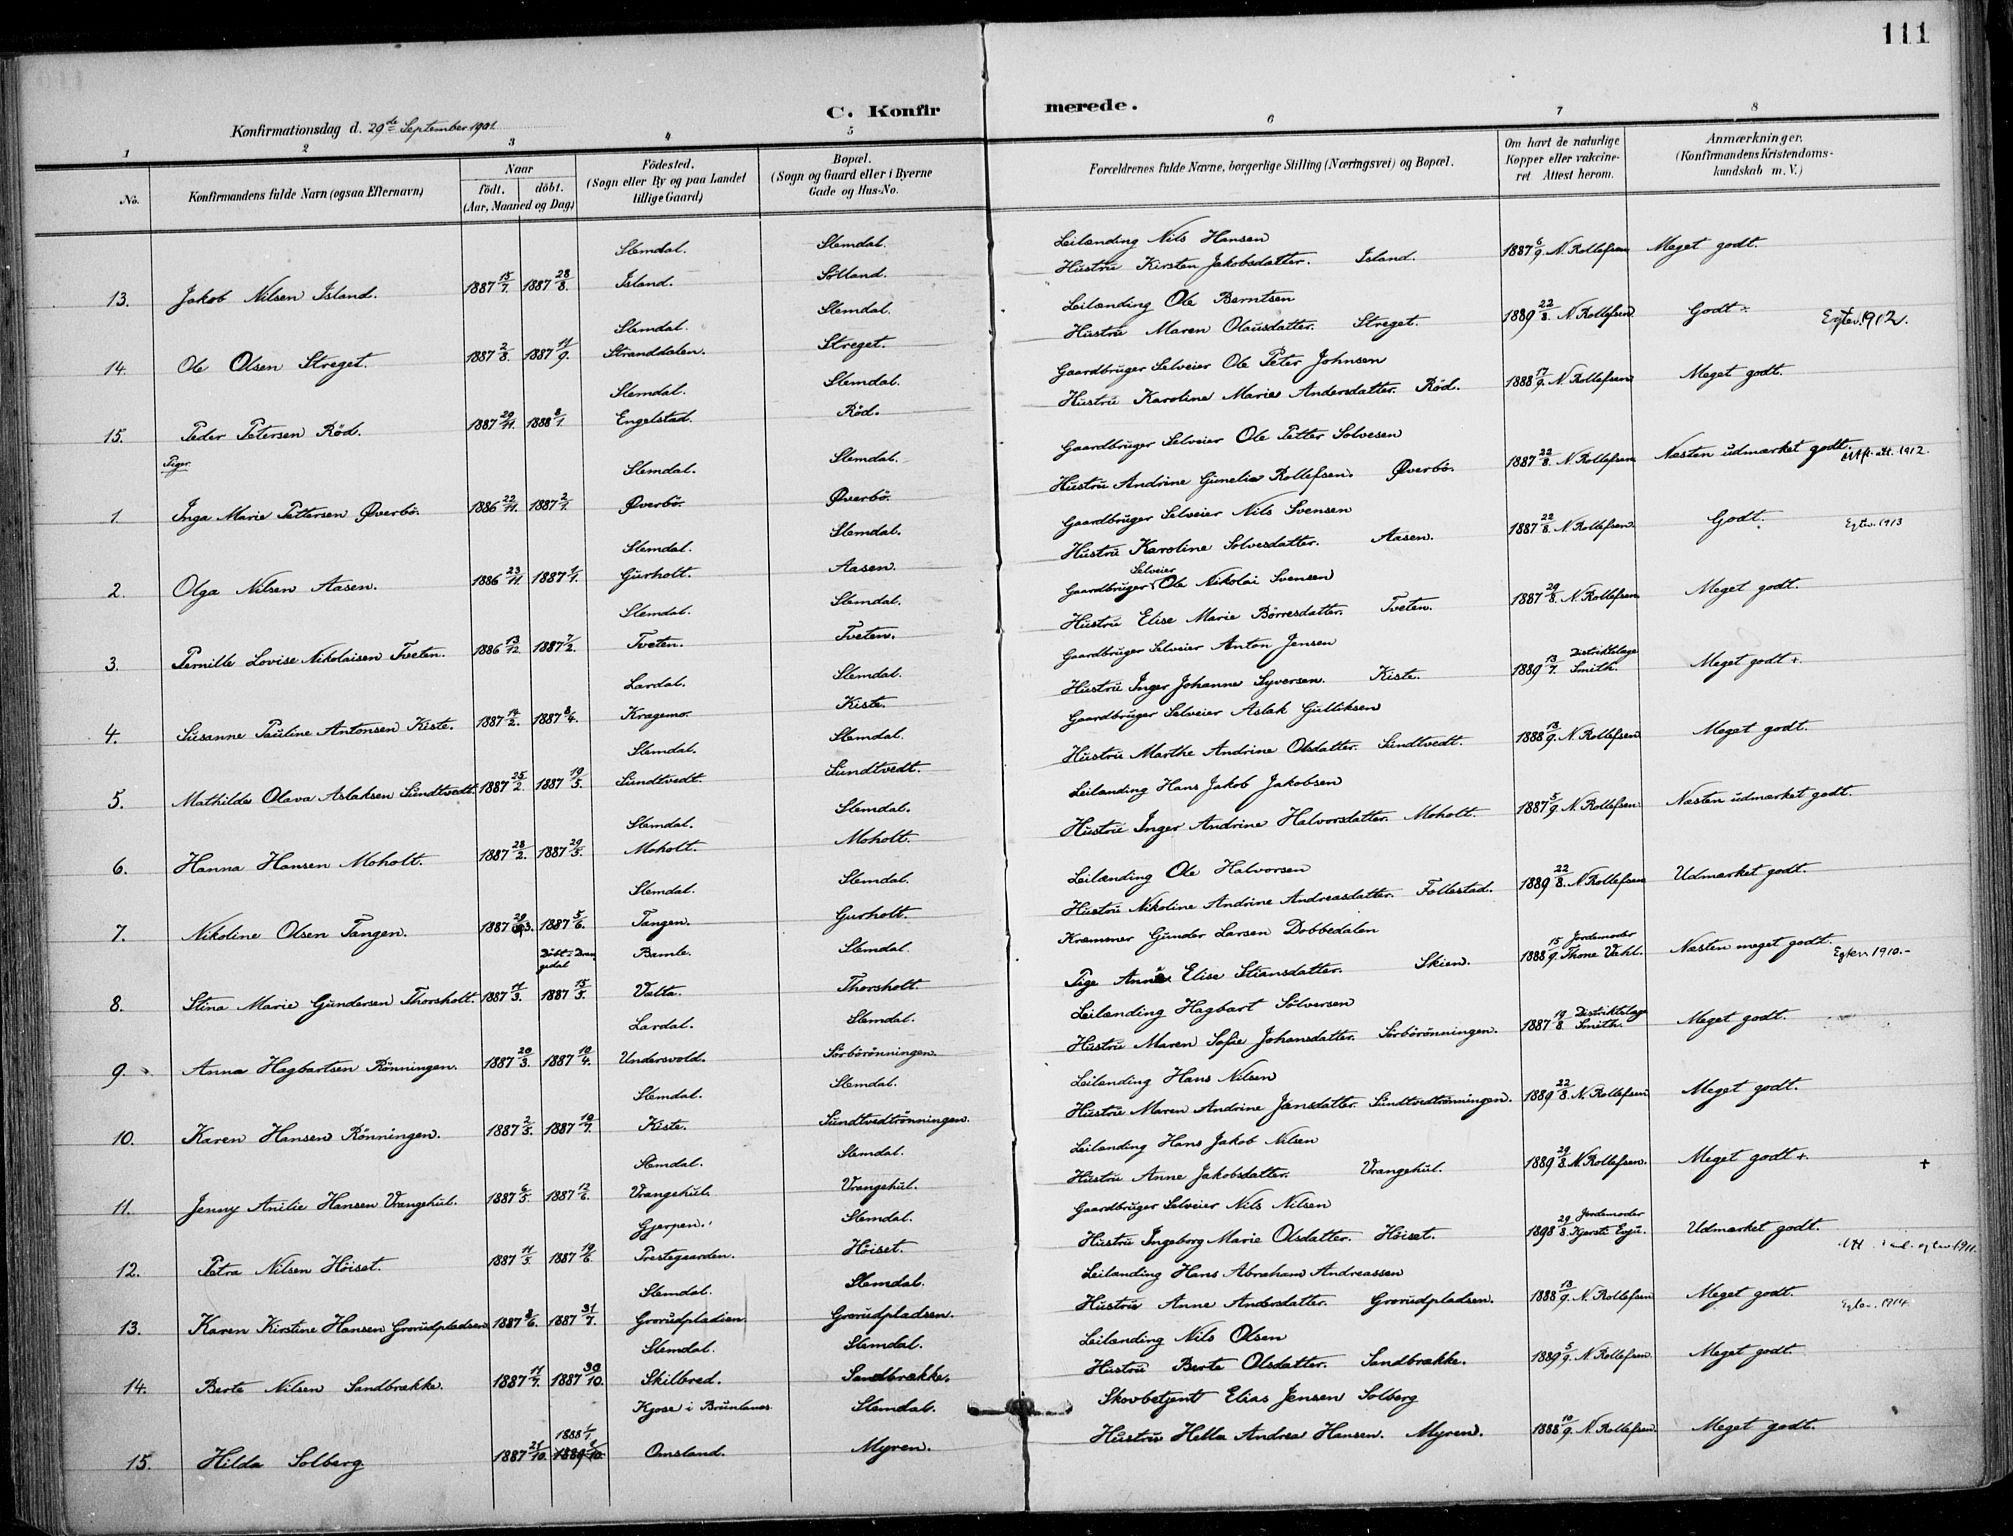 111
C. Konfirmerede.
Konfirmationsdag d. 29de September 1901.
1 2 3 4 5 6 7 8
No. Konfirmandens fulde Navn (ogsaa Efternavn) Naar født. døbt. (Aar, Maaned og Dag) Fødested. (Sogn eller By og paa Landet tillige Gaard) Bopæl. (Sogn og Gaard eller i Byerne Gade og Hus-No. Forældrenes fulde Navne, borgerlige Stilling (Næringsvei) og Bopæl. Om havt de naturlige Kopper eller vaccineret Attest herom. Anmærkninger. (Konfirmandens Kristendomskundskab m. V.)
Slemdal. Slemdal. Leilænding Nils Hansen
13. Jakob Nilsen Island. 1887 15/7. 1887 28/8. Island. Sölland. Hustru Kirsten Jakobsdatter. Island. 1887 6/9. N. Rollefsen Meget godt.
Slemdal. Slemdal. Leilænding Ole Berntsen
14. Ole Olsen Streget. 1887 2/8. 1887 11/9. Stranddalen. Streget. Hustru Maren Olausdatter. Streget. 1889 22/8. N. Rollefsen. Godt ÷. 1912.
Slemdal. Slemdal. Gaardbruger Selveier Ole Peter Johnsen
15. Peder Petersen Röd. 1887 20/11. 1888 8/1. Engelstad. Röd. Hustru Karoline Marie Andersdatter. Röd. 1888 17/9. N. Rollefsen Meget godt.
Piger
Slemdal. Slemdal. Gaardbruger Selveier Ole Petter Solvesen
1. Inga Marie Pettersen Øverbö. 1886 22/11. 1887 2/1. Øverbö. Øverbö. Hustru Andrine Gunelia Rollefsen. Øverbö. 1887 22/8. N. Rollefsen Næsten udmærket godt. att. 1912.
Slemdal. Slemdal. Gaardbruger Selveier Nils Svensen
2. Olga Nilsen Aasen. 1886 23/11. 1887 1/1. Gurholt. Aasen. Hustru Karoline Solvesdatter. Aasen. 1887 22/8. N. Rollefsen. Godt. 1913
Slemdal. Slemdal. Gaardbruger Selveier Ole Nikolai Svensen
3. Pernille Lovise Nikolaisen Tveten. 1886 13/12. 1887 7/2. Tveten. Tveten. Hustru Elise Marie Börresdatter. Tveten. 1887 29/8. N. Rollefsen Meget godt.
Lardal. Slemdal. Gaardbruger Selveier Anton Jensen
4. Susanne Pauline Antonsen Kiste. 1887 14/2. 1887 8/4. Kragemo. Kiste. Hustru Inger Johanne Syversen. Kiste. 1889 13/7. Distriktslæge Smith. Meget godt +.
Slemdal. Slemdal. Gaardbruger Selveier Aslak Gulliksen
5. Mathilde Olava Aslaksen Sundtvedt. 1887 25/2. 1887 19/5. Sundtvedt. Sundtvedt. Hustru Marthe Andrine Olsdatter. Sundtvedt. 1888 13/9. N. Rollefsen Meget godt.
Slemdal. Slemdal. Leilænding Hans Jakob Jakobsen
6. Hanna Hansen Moholt. 1887 28/2. 1887 29/5. Moholt. Moholt. Hustru Inger Andrine Halvorsdatter. Moholt. 1887 5/9. N. Rollefsen. Næsten udmærket godt.
Slemdal. Slemdal. Leilænding Ole Halvorsen
7. Nikoline Olsen Tangen. 1887 29/3. 1887 5/6. Tangen. Gurholt. Hustru Nikoline Andrine Andreasdatter. Follestad. 1889 22/8. N. Rollefsen Udmærket godt.
Döbt i Drangedal Bamle. Slemdal. Kræmmer Gunder Larsen Dobbedalen
8. Stina Marie Gundersen Thorsholt. 1887 11/3. 1887 15/5. Valta. Thorsholt. Pige Anne Elise Stiansdatter. Skien. 1888 15/9. Jordemoder Thone Vahl. Næsten meget godt. 1910.
Lardal. Slemdal. Leilænding Hagbart Sölversen
9. Anna Hagbartsen Rönningen. 1887 20/3. 1887 10/4. Undersvold. Sörbörönningen. Hustru Maren Sofie Johansdatter. Sörbörönningen. 1887 19/8. Distriktslæge Smith. Meget godt.
Slemdal. Slemdal. Leilænding Hans Nilsen
10. Karen Hansen Rönningen. 1887 2/5. 1887 10/7. Kiste. Sundtvedtrönningen. Hustru Maren Andrine Jansdatter. Sundtvedtrönningen. 1889 22/8. N. Rollefsen Meget godt.
Slemdal. Slemdal. Leilænding Hans Jakob Nilsen
11. Jenny Amilie Hansen Vrangehul. 1887 6/5. 1887 12/6. Vrangehul. Vrangehul. Hustru Anne Jakobsdatter. Vrangehul. 1889 29/8. N. Rollefsen. Meget godt +. +
Gjerpen. Slemdal. Gaardbruger Selveier Nils Nilsen
12. Petra Nilsen Höiset. 1887 11/5. 1887 19/6. Prestegaarden. Höiset. Hustru Ingeborg Marie Olsdatter. Höiset. 1898 29/8. Jordemoder Kjersti Udmærket godt. 1911.
Slemdal. Slemdal. Leilænding Hans Abraham Andreassen
13. Karen Kirstine Hansen Grorudpladsen 1887 8/6. 1887 31/7. Grorudpladsen. Grorudpladsen. Hustru Anne Andersdatter. Grorudpladsen. 1888 13/9. N. Rollefsen Meget godt. 1914.
Slemdal. Slemdal. Leilænding Nils Olsen
14. Berte Nilsen Sandbrække. 1887 11/7. 1887 30/10. Skilbred. Sandbrække. Hustru Berte Olsdatter. Sandbrække. 1889 5/9. N. Rollefsen. Meget godt.
Kjose i Brunlanes Slemdal. Skovbetjent Elias Jensen Solberg
15. Hilda Solberg. 1887 21/10. 1888 1/1. Omsland. Myren. Hustru Hella Andrea Hansen. Myren. 1888 10/9. N. Rollefsen. Meget godt.